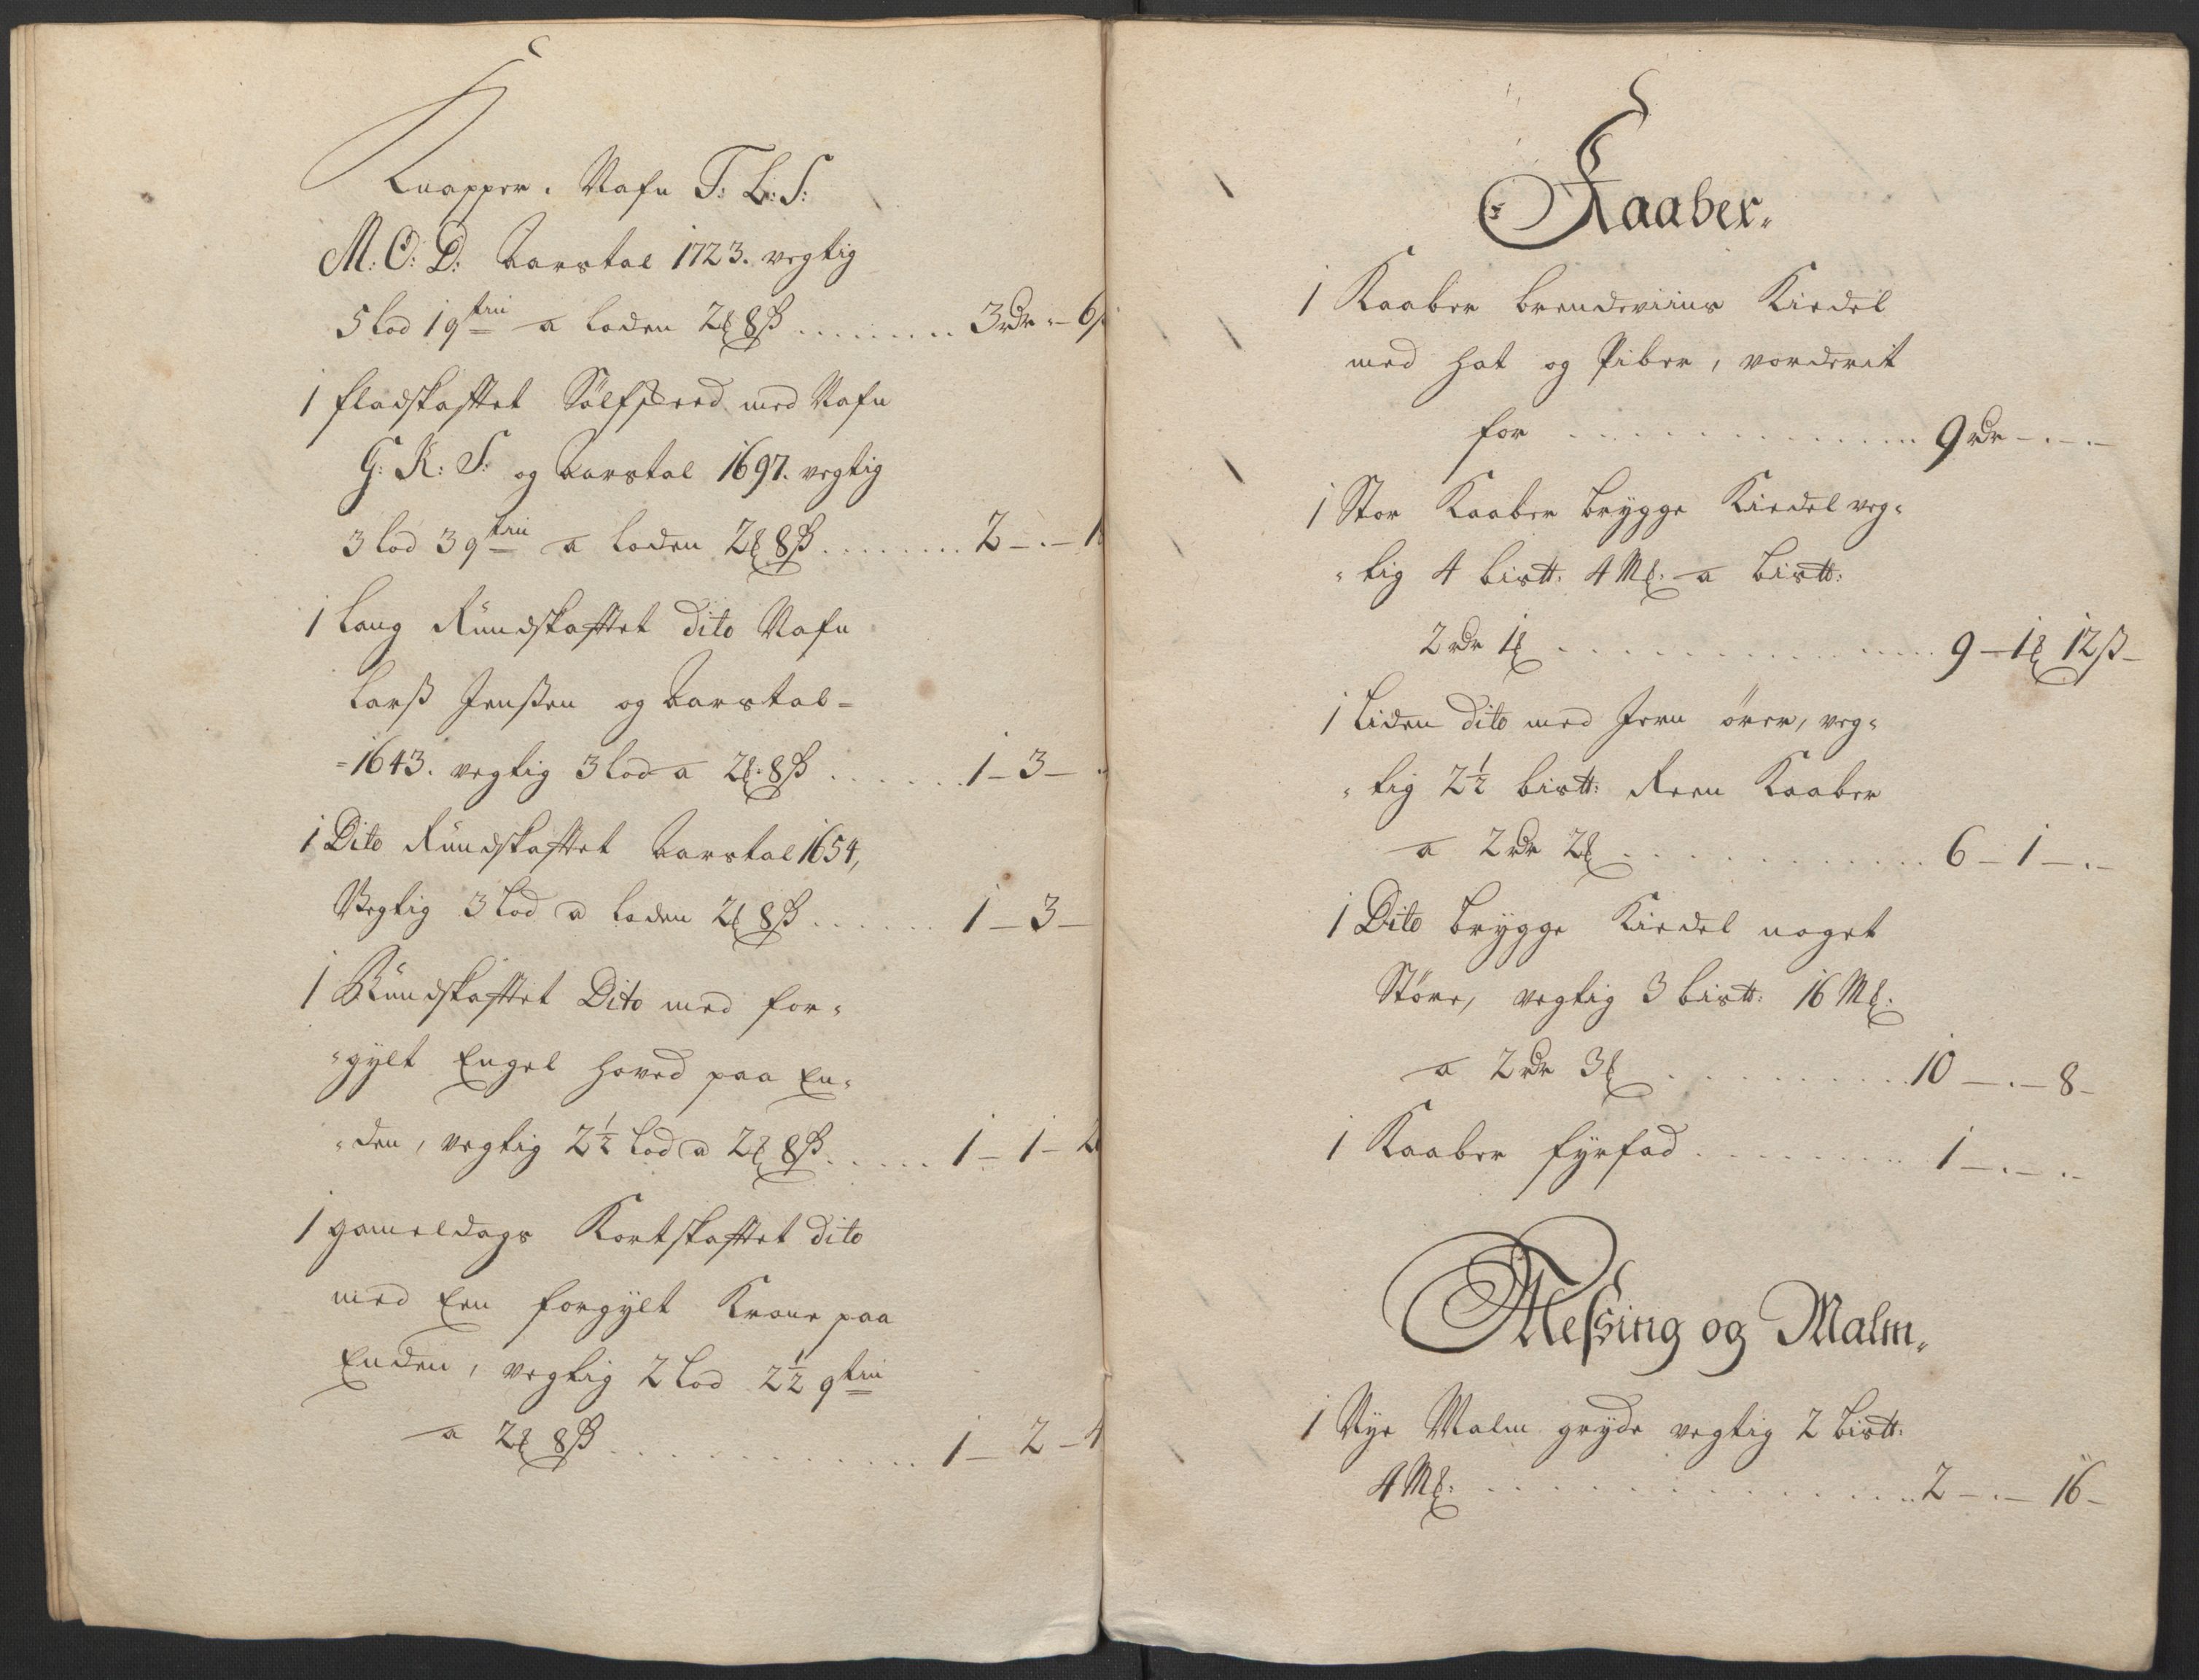 Knapper. Nafn T: L: S:
M: O: D: Aarstal 1723. vegtig
5 lod 1 qtin a loden 2 ℳ 8 ß ......... 3 rdr - 6
1 fladskafftet Sølfskeed med Nafn
G: K: S: og Aarstal 1697. vegtig
3 lod 3 qtin a loden 2 ℳ 8 ß ........ 2 - . - 1
1 lang Rundskafftet dito Nafn
Larß Jenßen og Aarstal =
= 1643. vegtig 3 lod a 2 ℳ. 8 ß ....... 1 - 3 -
1 Dito Rundskafftet Aarstal 1654,
Vegtig 3 lod a loden 2 ℳ 8 ß ...... 1 - 3 -
1 Rundskafftet Dito med for=
=gylt Engel hoved paa En=
=den, vegtig 2½ lod a 2 ℳ 8 ß ..... 1 - 1 -
1 gameldags Kortskafftet dito
med Een forgylt Krone paa
Enden, vegtig 2 lod 2½ qtin
a 2 ℳ 8 ß ............. 1 - 2 - 4
Kaaber.
1 Kaaber brendeviins Kiedel
med hat og Piber, vorderit
for ............... 9 rdr - . - . -
1 Stor Kaaber brygge Kiedel veg=
=tig 4 bist℔: 4 Mk: a bist℔:
2 rdr 1 ℳ ............... 9 - 1 ℳ 12 ß -
1 liden dito med Jern ører, veg=
=tig 2½ bist℔: Reen Kaaber
a 2 rdr 2 ℳ ............. 6 - 1 - . -
1 Dito brygge Kiedel noget
Større, vegtig 3 bist℔: 16 Mk:
a 2 rdr 3 ℳ .......... 10 - . - 8 -
1 Kaaber fyrfad ......... 1 - . - . -
Meßing og Malm.
1 Nye Malm gryde vegtig 2 bist℔:
4 Mk: ............... 2 - . - 16 -